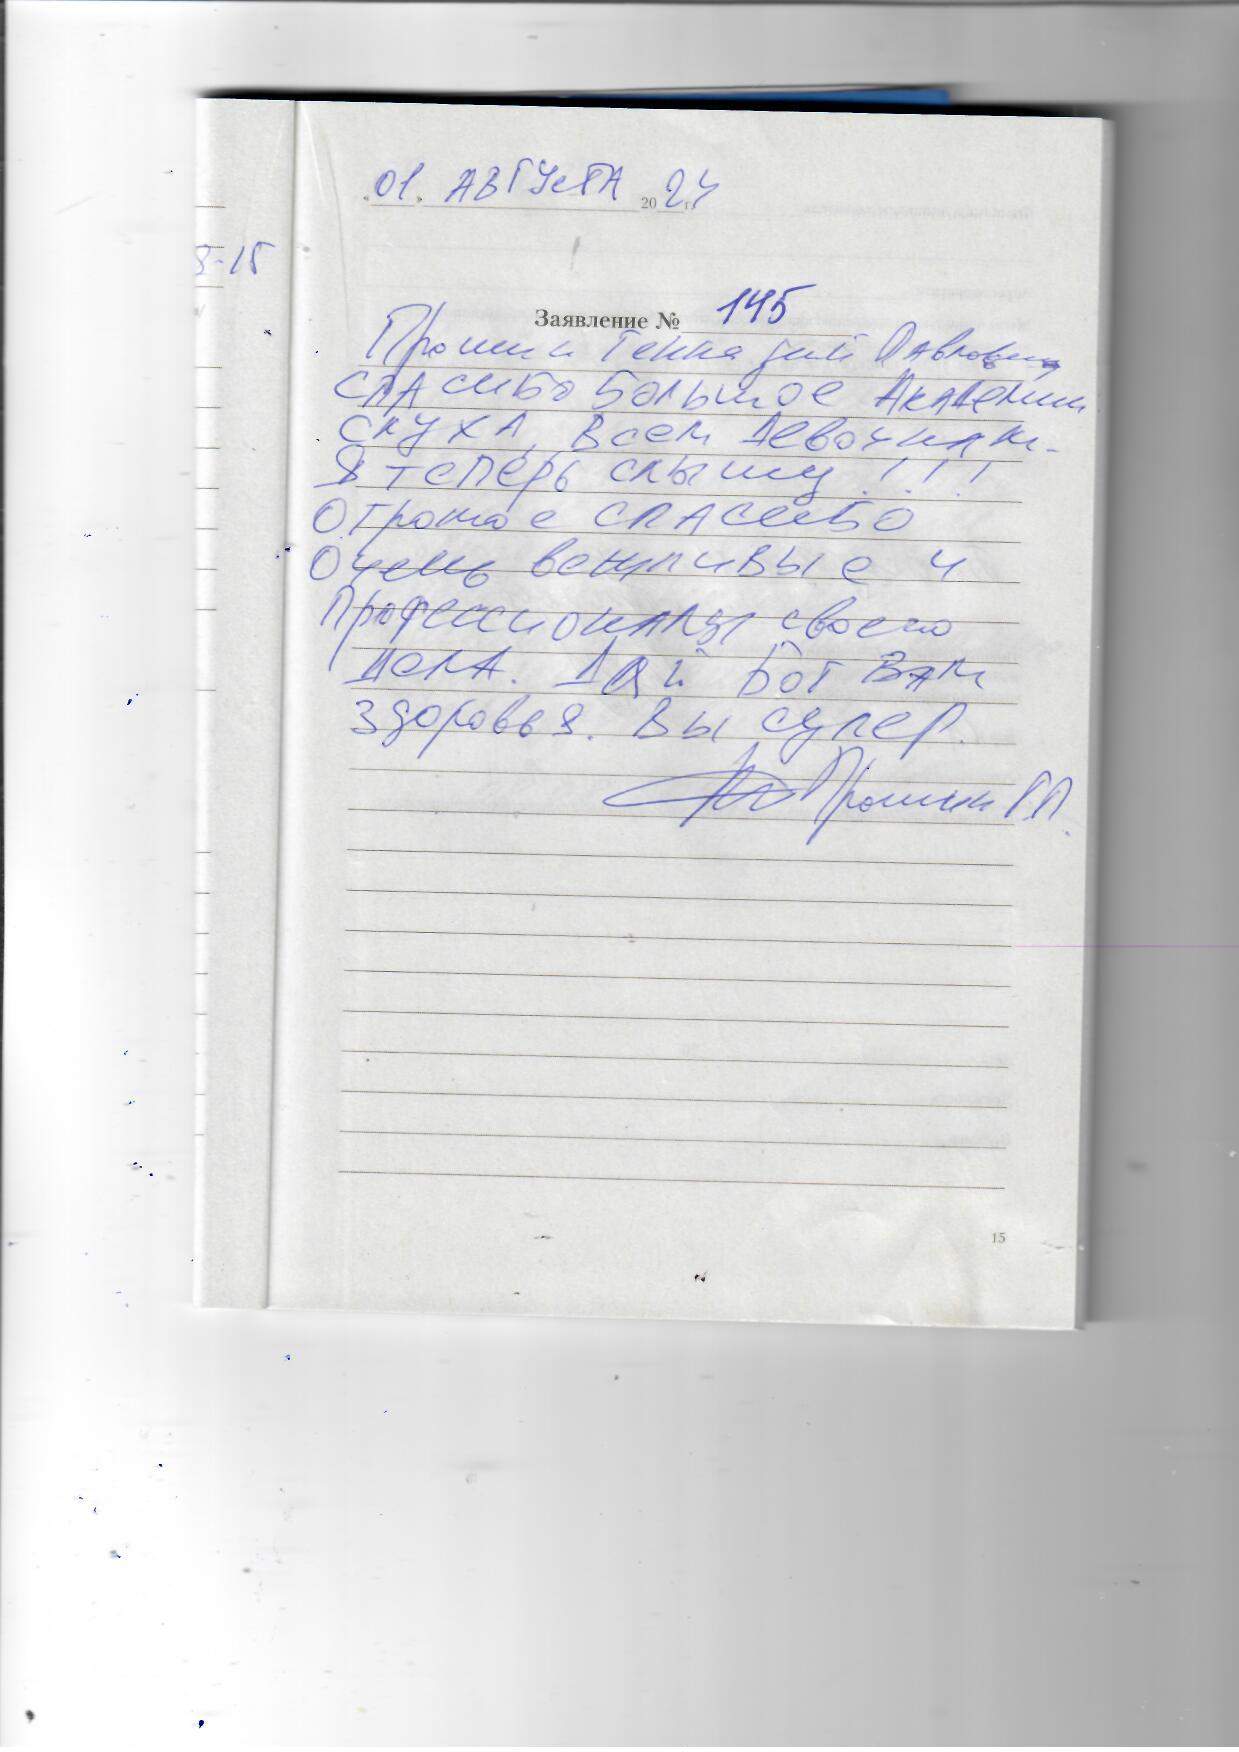 «01» АВГУСТА 2024 г.
8-15
Заявление № 145
Прошин Геннадий Павлович
СПАСИБО БОЛЬШОЕ АКАДЕМИИ
СЛУХА, ВСЕМ ДЕВОЧКАМ.
Я ТЕПЕРЬ СЛЫШУ!!!
Огромное СПАСИБО
Очень вежливые и
Профессионалы своего
ДЕЛА. ДАЙ БОГ ВАМ
Здоровья. Вы супер.
Прошин Г.П.
15